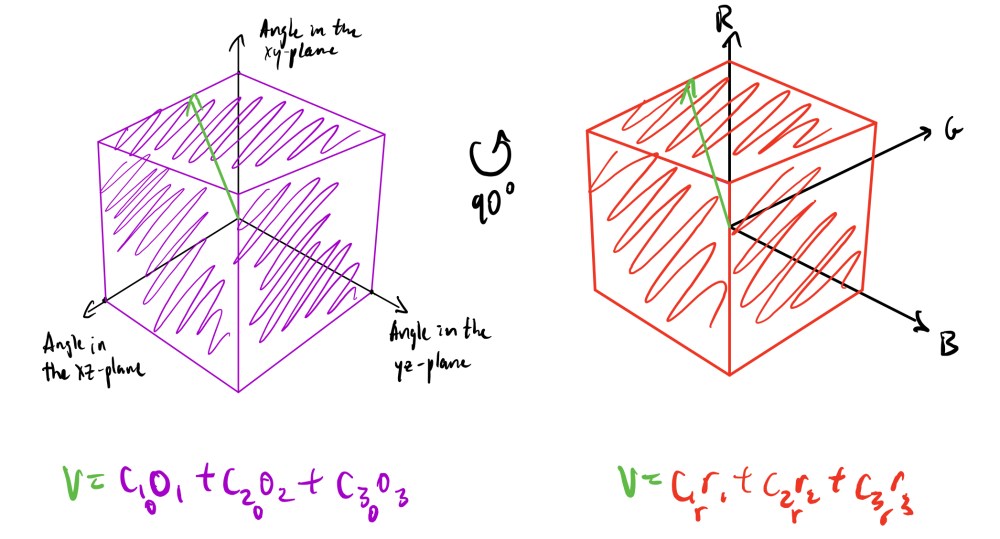 Angle in the
xy-plane
R
G
90°
Angle in
the xz-plane
Angle in the
yz-plane
B
V = C₁₀O₁ + C₂₀O₂ + C₃₀O₃
V = C₁ᵣr₁ + C₂ᵣr₂ + C₃ᵣr₃